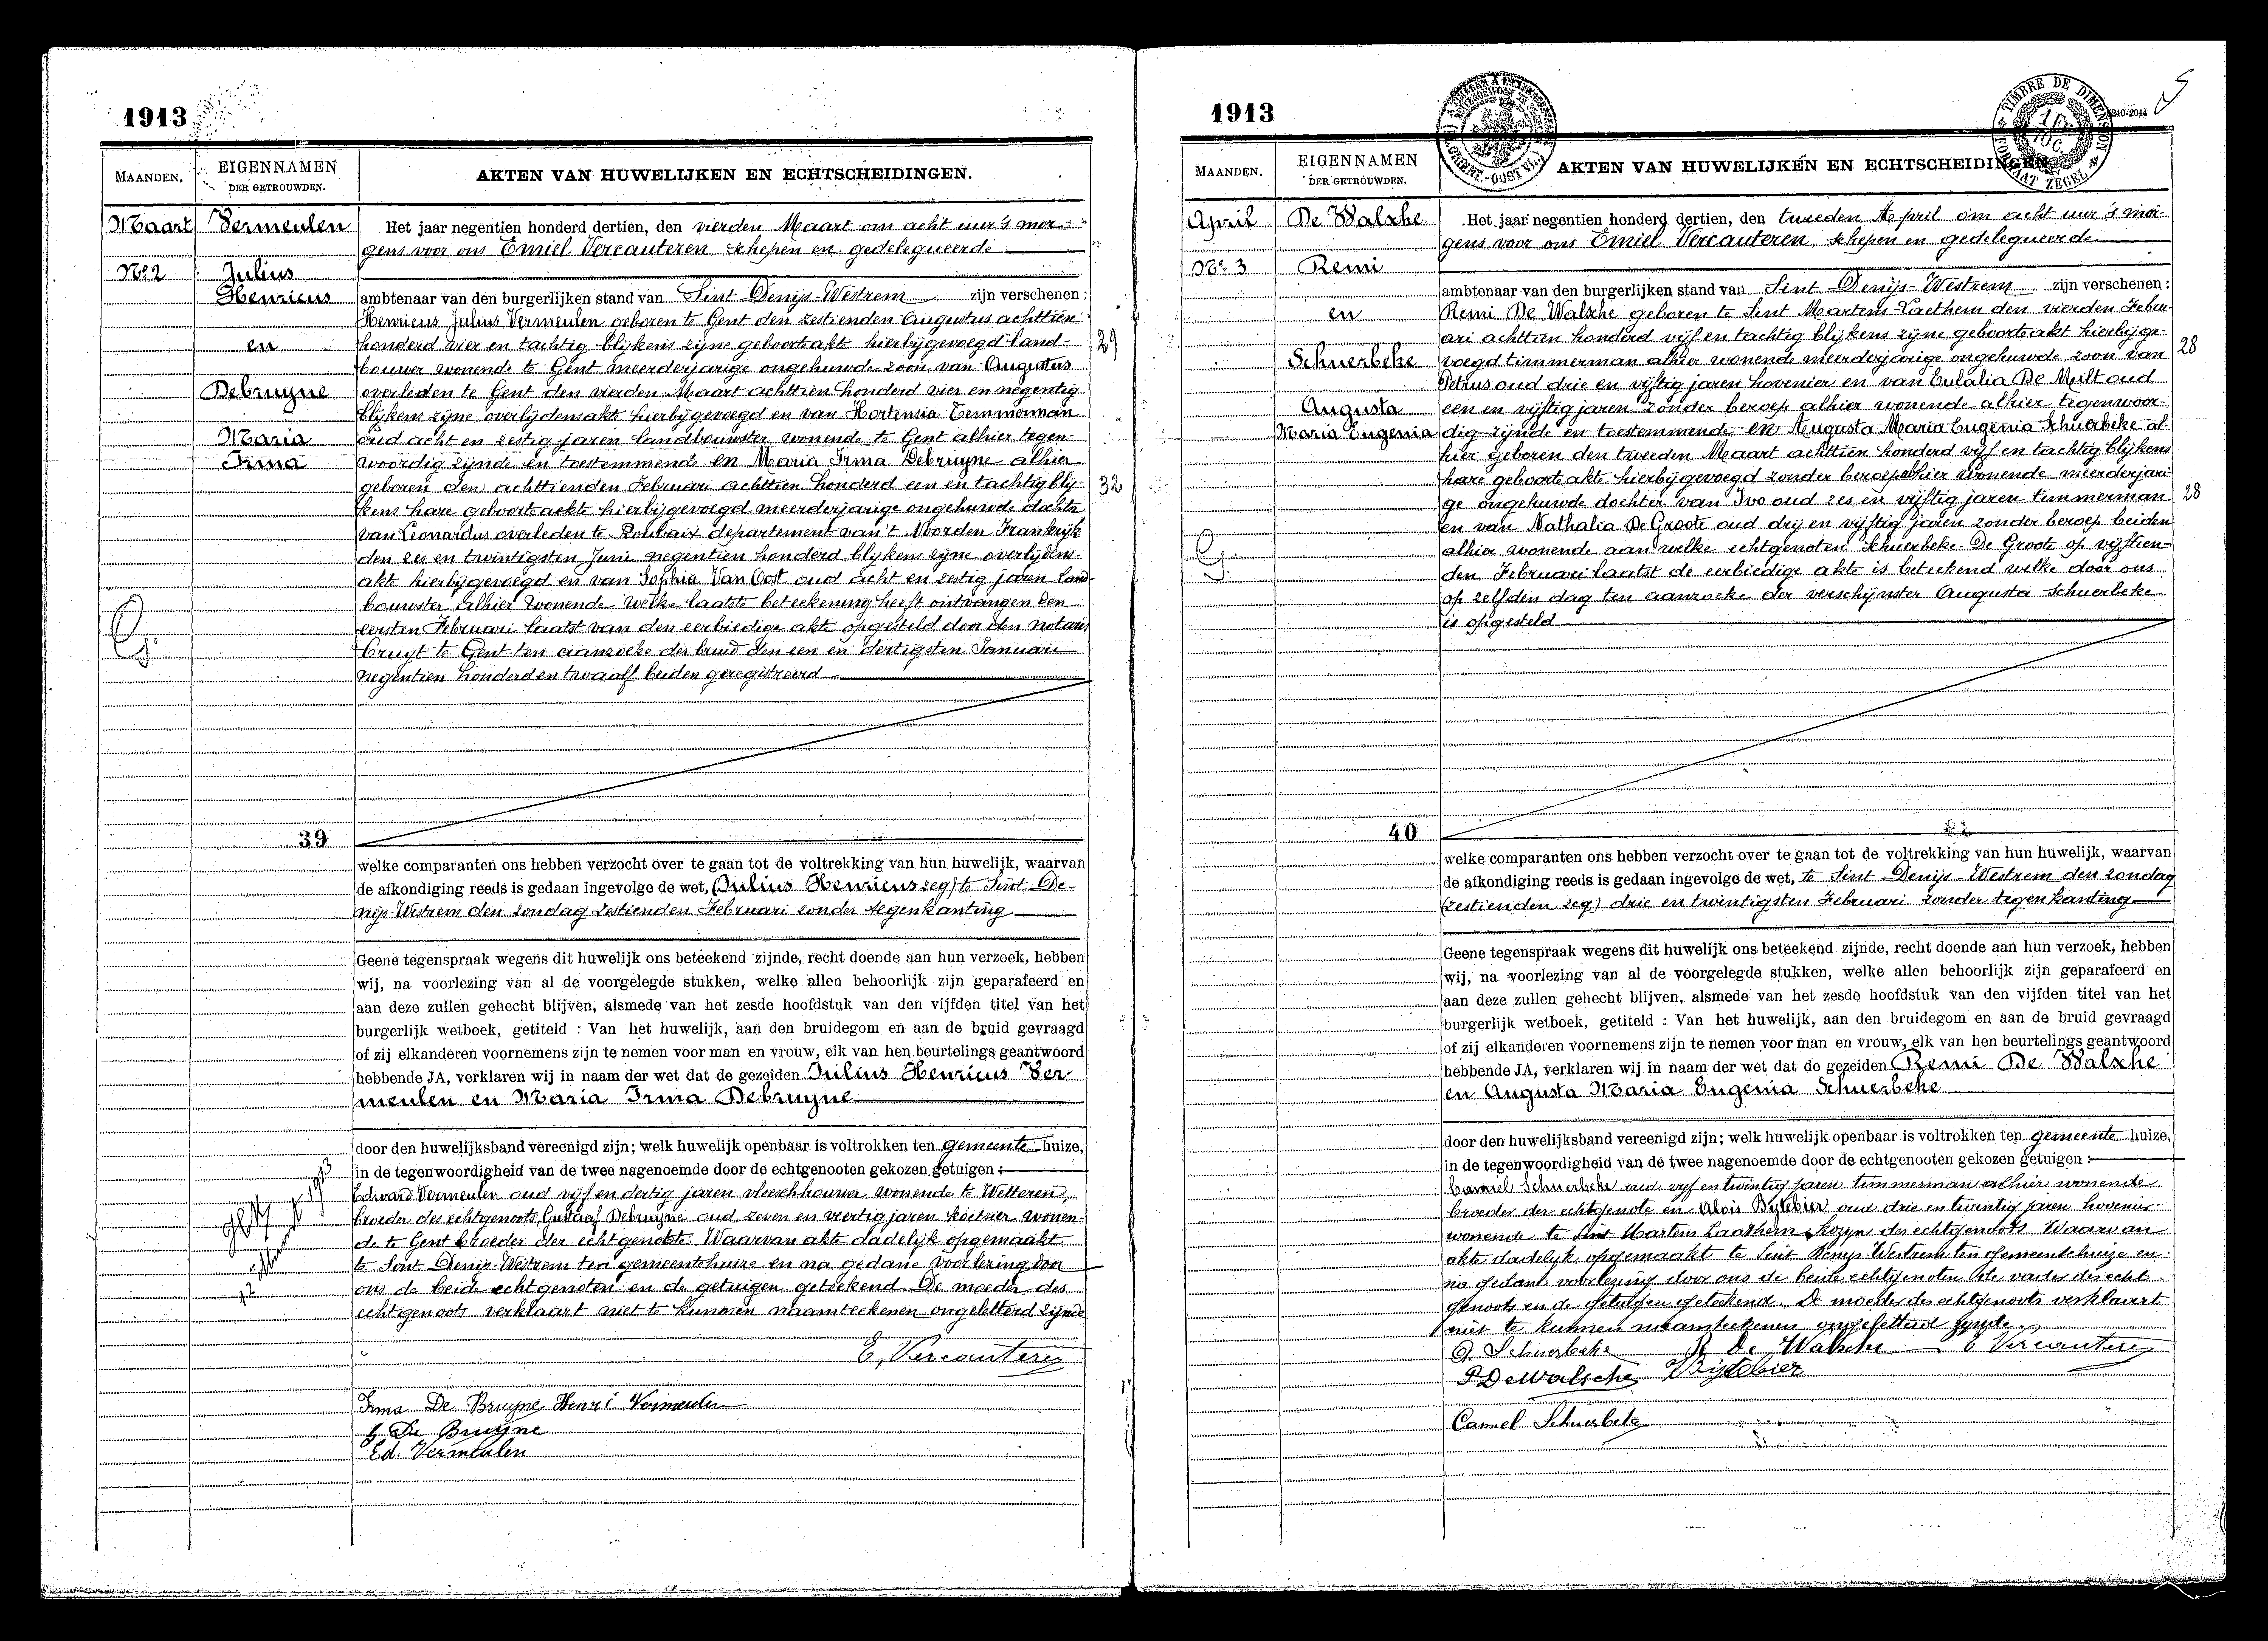 1913
MAANDEN.
EIGENNAMEN
DER GETROUWDEN.
AKTEN VAN HUWELIJKEN EN ECHTSCHEIDINGEN.
Maart
No. 2
Vermeulen
Julius
Henricus
en
Debruyne
Maria
Irma
Het jaar negentien honderd dertien, den vierden Maart om acht uur 's mor-
gens voor ons Emiel Vercauteren schepen en gedelegueerde
ambtenaar van den burgerlijken stand van Sint Denijs-Westrem zijn verschenen:
Henricus Julius Vermeulen geboren te Gent den zestienden Augustus achttien
honderd vier en tachtig blijkens zijne geboorteakte hierbijgevoegd land-
29
bouwer wonende te Gent meerderjarige ongehuwde zoon van Augustus
overleden te Gent den vierden Maart achttien honderd vier en negentig
blijkens zijne overlijdensakte hierbijgevoegd en van Hortensia Temmerman
oud acht en zestig jaren landbouwster wonende te Gent alhier tegen-
woordig zijnde en toestemmende en Maria Irma Debruyne alhier
geboren den achttienden Februari achttien honderd een en tachtig blij-
32
kens hare geboorteakte hierbijgevoegd meerderjarige ongehuwde dochter
van Leonardus overleden te Roubaix departement van 't Noorden Frankrijk
den zes en twintigsten Juni negentien honderd blijkens zijne overlijdens-
akte hierbijgevoegd en van Sophia Van Oost oud acht en zestig jaren land-
bouwster alhier wonende welke laatste beteekening heeft ontvangen den
eersten Februari laatst van den eerbiedige akte opgesteld door den notaris
Cruyt te Gent ten aanzoeke der bruid den een en dertigsten Januari
negentien honderd en twaalf beiden geregistreerd
39
welke comparanten ons hebben verzocht over te gaan tot de voltrekking van hun huwelijk, waarvan
de afkondiging reeds is gedaan ingevolge de wet, (Julius Henricus zeg) te Sint De-
nijs-Westrem den zondag zestienden Februari zonder tegenkanting
Geene tegenspraak wegens dit huwelijk ons beteekend zijnde, recht doende aan hun verzoek, hebben
wij, na voorlezing van al de voorgelegde stukken, welke allen behoorlijk zijn geparafeerd en
aan deze zullen gehecht blijven, alsmede van het zesde hoofdstuk van den vijfden titel van het
burgerlijk wetboek, getiteld : Van het huwelijk, aan den bruidegom en aan de bruid gevraagd
of zij elkanderen voornemens zijn te nemen voor man en vrouw, elk van hen beurtelings geantwoord
hebbende JA, verklaren wij in naam der wet dat de gezeiden Julius Henricus Ver-
meulen en Maria Irma Debruyne
door den huwelijksband vereenigd zijn; welk huwelijk openbaar is voltrokken ten gemeente-huize,
in de tegenwoordigheid van de twee nagenoemde door de echtgenooten gekozen getuigen :
Edward Vermeulen oud vijf en dertig jaren vleeschhouwer wonende te Wetteren,
broeder des echtgenoots, Gustaaf Debruyne oud zeven en veertig jaren koetsier wonen-
de te Gent broeder der echtgenoote. Waarvan akte dadelijk opgemaakt
te Sint Denijs-Westrem ten gemeentehuize en na gedane voorlezing door
ons de beide echtgenoten en de getuigen geteekend. De moeder des
echtgenoots verklaart niet te kunnen naamteekenen ongeletterd zijnde
E. Vercauteren
Irma De Bruyne Henri Vermeulen
G De Bruyne
Ed. Vermeulen
1913
TIMBRE DE DIMENSION
FORMAAT ZEGEL
MAANDEN.
EIGENNAMEN
DER GETROUWDEN.
AKTEN VAN HUWELIJKEN EN ECHTSCHEIDINGEN
April
No. 3
De Walsche
Remi
en
Schuerbeke
Augusta
Maria Eugenia
Het jaar negentien honderd dertien, den tweeden April om acht uur 's mor-
gens voor ons Emiel Vercauteren schepen en gedelegueerde
ambtenaar van den burgerlijken stand van Sint Denijs-Westrem zijn verschenen:
Remi De Walsche geboren te Sint Martens-Laethem den vierden Febru-
ari achttien honderd vijf en tachtig blijkens zijne geboorteakt hierbijge-
voegd timmerman alhier wonende meerderjarige ongehuwde zoon van
28
Petrus oud drie en vijftig jaren hovenier en van Eulalia De Milt oud
een en vijftig jaren zonder beroep alhier wonende alhier tegenwoor-
dig zijnde en toestemmende en Augusta Maria Eugenia Schuerbeke al-
hier geboren den tweeden Maart achttien honderd vijf en tachtig blijkens
hare geboorteakte hierbijgevoegd zonder beroep alhier wonende meerderjari-
ge ongehuwde dochter van Ivo oud zes en vijftig jaren timmerman
28
en van Nathalia De Groote oud drij en vijftig jaren zonder beroep beiden
alhier wonende aan welke echtgenoten Schuerbeke-De Groote op vijftien-
den Februari laatst de eerbiedige akte is beteekend welke door ons
op zelfden dag ten aanzoeke der verschijnster Augusta Schuerbeke
is opgesteld
40
welke comparanten ons hebben verzocht over te gaan tot de voltrekking van hun huwelijk, waarvan
de afkondiging reeds is gedaan ingevolge de wet, te Sint Denijs-Westrem den zondag
(zestienden zeg) drie en twintigsten Februari zonder tegenkanting
Geene tegenspraak wegens dit huwelijk ons beteekend zijnde, recht doende aan hun verzoek, hebben
wij, na voorlezing van al de voorgelegde stukken, welke allen behoorlijk zijn geparafeerd en
aan deze zullen gehecht blijven, alsmede van het zesde hoofdstuk van den vijfden titel van het
burgerlijk wetboek, getiteld : Van het huwelijk, aan den bruidegom en aan de bruid gevraagd
of zij elkanderen voornemens zijn te nemen voor man en vrouw, elk van hen beurtelings geantwoord
hebbende JA, verklaren wij in naam der wet dat de gezeiden Remi De Walsche
en Augusta Maria Eugenia Schuerbeke
door den huwelijksband vereenigd zijn; welk huwelijk openbaar is voltrokken ten gemeente-huize,
in de tegenwoordigheid van de twee nagenoemde door de echtgenooten gekozen getuigen :
Camiel Schuerbeke oud vyf en twintig jaren timmerman alhier wonende
broeder der echtgenote en Alois Bytebier oud drie en twintig jaren hovenier
wonende te Sint Martens Laathem kozyn des echtgenoots Waarvan
akte dadelyk opgemaakt te Sint Denys Westrem ten gemeentehuize en
na gedane voorlezing door ons de beide echtgenoten de vader des echt-
genoots en de getuigen geteekend. De moeder des echtgenoots verklaart
niet te kunnen naamteekenen ongeletterd zynde.
A. Schuerbeke R De Walsche E Vercauteren
P De Walsche Bijtebier
Camiel Schuerbeke